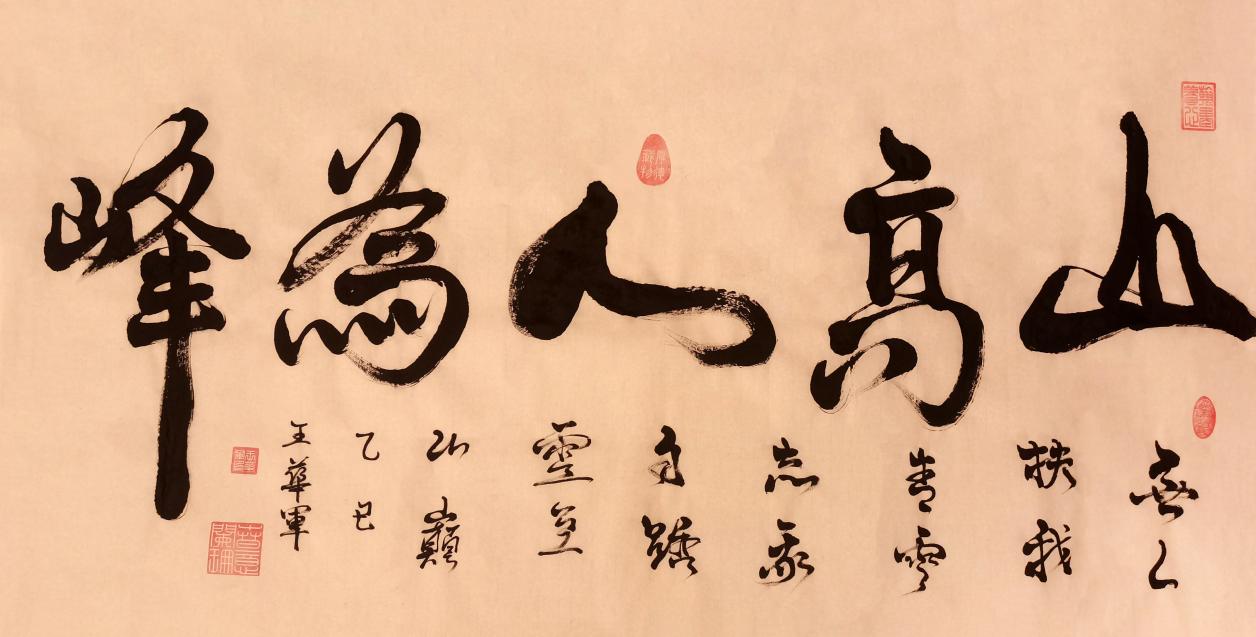 山高人為峰
無人
扶我
青雲
志我
自踏
雪至
山巔
乙巳
王華軍
厚德載物